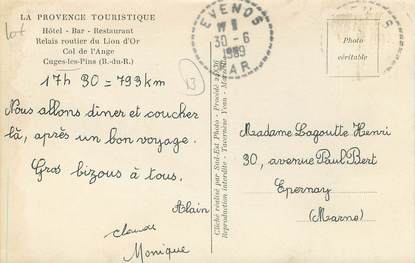 LA PROVENCE TOURISTIQUE
Hôtel - Bar - Restaurant
Relais routier du Lion d'Or
Col de l'Ange
Cuges-les-Pins (B.-du-R.)
17h 30 = 793 km
Nous allons dîner et coucher
là, après un bon voyage.
Gros bizous à tous.
Alain
Claude
Monique
13
EVENOS
30-6
1989
VAR
Photo
véritable
Cliché réalisé par Sud-Est Photo - Procédé
Reproduction interdite - Tavernese Yvon - Marseille
Madame Lagoutte Henri
30, avenue Paul Bert
Epernay
(Marne)